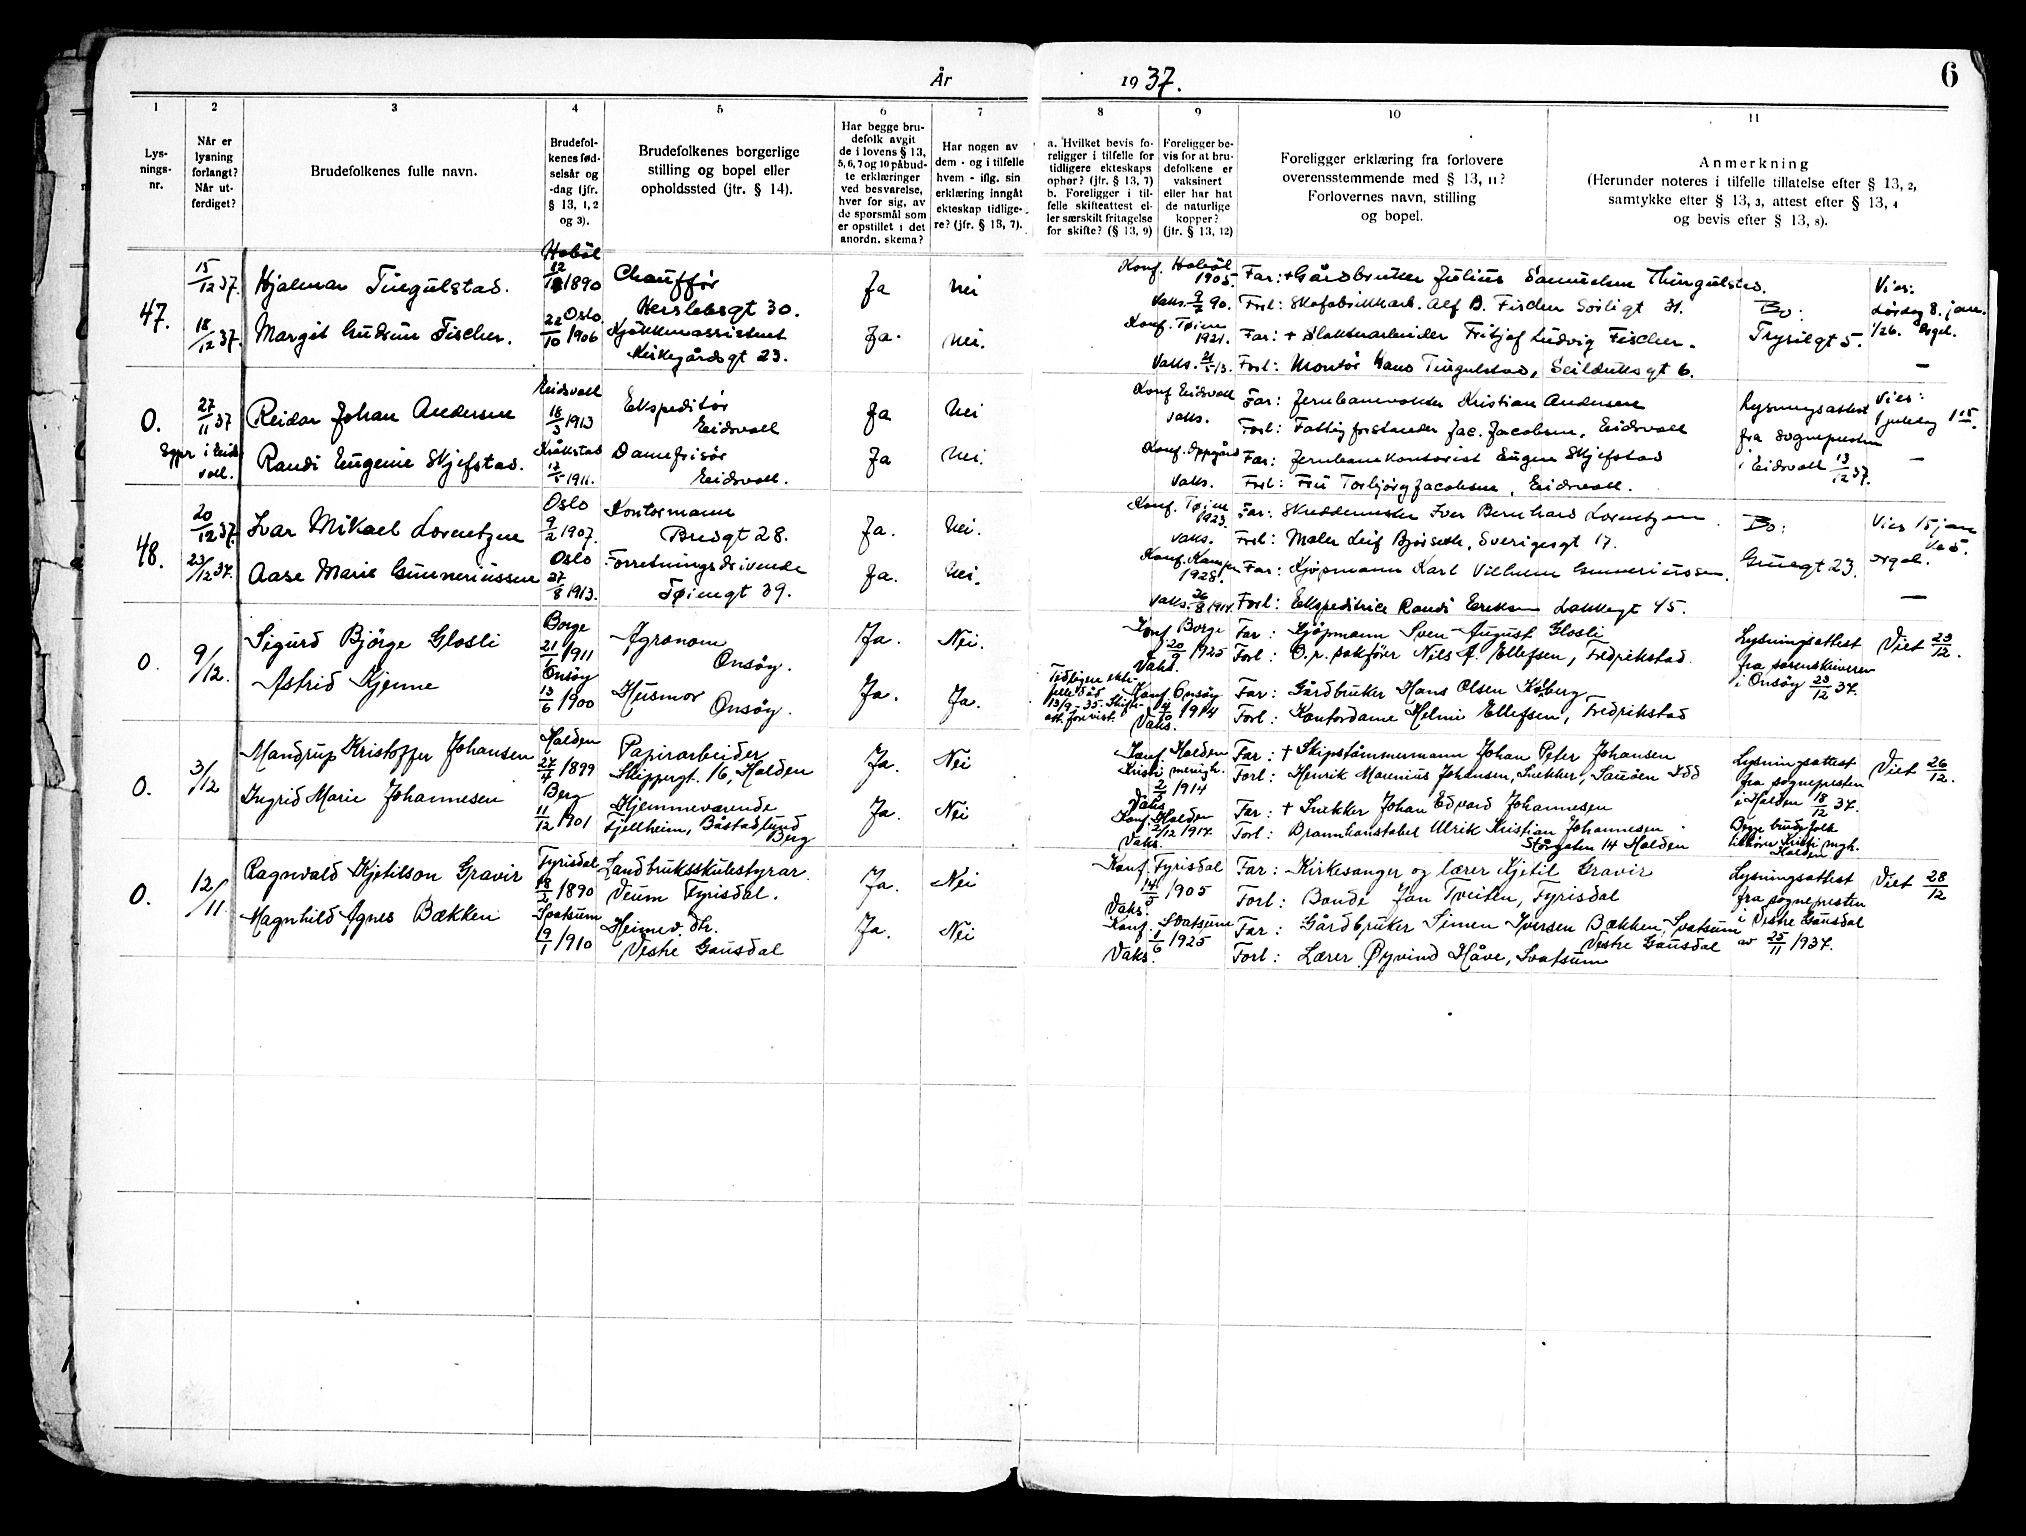 År 1937. 6
1 2 3 4 5 6 7 8 9 10 11
Lysningsnr.
Når er lysning forlangt? Når utferdiget?
Brudefolkenes fulle navn.
Brudefolkenes fødselsår og -dag (jfr. § 13, 1, 2 og 3).
Brudefolkenes borgerlige stilling og bopel eller opholdssted (jfr. § 14).
Har begge brudefolk avgit de i lovens § 13, 5, 6, 7 og 10 påbudte erklæringer ved besvarelse, hver for sig, av de spørsmål som er opstillet i det anordn. skema?
Har nogen av dem - og i tilfelle hvem - iflg. sin erklæring inngått ekteskap tidligere? (jfr. § 13, 7).
a. Hvilket bevis foreligger i tilfelle for tidligere ekteskaps ophør? (jfr. § 13, 7) b. Foreligger i tilfelle skifteattest eller særskilt fritagelse for skifte? (§ 13, 9)
Foreligger bevis for at brudefolkene er vaksinert eller har hat de naturlige kopper? (jfr. § 13, 12)
Foreligger erklæring fra forlovere overensstemmende med § 13, 11? Forlovernes navn, stilling og bopel.
Anmerkning (Herunder noteres i tilfelle tillatelse efter § 13, 2, samtykke efter § 13, 3, attest efter § 13, 4 og bevis efter § 13, 8).
47.
15/12 37. Hjalmar Tingulstad. Hobøl 1890 Chauffør Herslebsgt 30. Ja Nei
Konf. Hobøl 1905. Vaks. 90. Far: + Gårdbruker Julius Samuelsen Thingulstad.
Forl: Skofabrikkarb. Alf B. Fischer Sörligt 31.
18/12 37. Margit Gudrun Fischer. Oslo 22/10 1906 Kjökkenassistent Kirkegårdsgt 23. Ja. Nei.
Konf. Tøien 1921. Vaks. Far: + Slakterarbeider Fritjof Ludvig Fischer.
Forl: Montör Hans Tingulstad, Seilduksgt 6.
Bo: Trysilgt 5.
Vies: Lördag 8. jan. Orgel. —
0. Eidsvoll.
27/11 37 Reidar Johan Andersen Eidsvoll 18/3 1913 Ekspeditör Eidsvoll Ja Nei
Konf. Eidsvoll Vaks. Far: Jernbanevokter Kristian Andersen
Forl: Fattigforstander Jac. Jacobsen, Eidsvoll
Randi Eugenie Skjefstad. Kråkstad 1911. Damefrisör Eidsvoll. Ja Nei.
Konf. Oppgård Vaks. Far: Jernbanekontorist Eugen Skjefstad
Forl: Fru Torbjörg Jacobsen, Eidsvoll.
Lysningsattest fra sognepresten i Eidsvoll 13/12 37.
Vies: 1 juledag 1 15. —
48.
20/12 37. Ivar Mikael Lorentzen Oslo 9/2 1907. Kontormann Bredgt 28. Ja. Nei.
Konf. Tøien 1923. Vaks. Far: Skreddermester Iver Bernhard Lorentzen.
Forl: Maler Leif Bjöiseth, Sverigesgt 17.
23/12 37. Aase Marie Gunneriussen Oslo 27/8 1913. Forretningsdrivende Tøiengt 39. Ja. Nei.
Konf. Kampen 1928. Vaks. 26/8 1914. Far: Kjöpmann Karl Vilhelm Gunneriussen.
Forl: Ekspeditrice Randi Eriksen Lakkegt 45.
Bo: Gruegt 23.
Vies 15 jan Orgel. —
0. 9/12.
Sigurd Bjørge Glosli Borge 21/1 1911 Agronom Onsöy. Ja. Nei.
Konf. Borge 20/9 1925 Vaks. Far: Kjøpmann Sven August Glosli
Forl: O.r. sakfører Nils A. Ellefsen, Fredrikstad.
Astrid Kjenne Onsöy 13/6 1900 Husmor Onsöy. Ja. Ja.
Tidligere ektefelle død 13/9-35. Skifteatt. forevist.
Konf. Onsöy 1914 Vaks. Far: Gårdbruker Hans Olsen Kåberg
Forl: Kontordame Helmi Ellefsen, Fredrikstad
Lysningsattest fra sorenskriveren i Onsöy 23/12 37.
Viet 23/12.
0. 3/12
Mandrup Kristoffer Johansen Halden 27/4 1899 Papirarbeider Skippergt. 16, Halden Ja. Nei
Konf. Halden Kristi menigh. 1914 Vaks. Far: + Skipstömmermann Johan Peter Johansen
Forl: Henrik Marenius Johansen, Snekker, Sauöen Idd
Ingrid Marie Johannesen Berg 11/12 1901 Hjemmeværende Fjellheim, Båstadlund Berg Ja. Nei
Konf. Halden 1917. Vaks. Far: + Snekker Johan Edvard Johannesen
Forl: Brannkonstabel Ulrik Kristian Johannesen. Storgaten 14 Halden
Lysningsattest fra sognepresten i Halden 18/12 37. Begge brudefolk tilhører Kristi mgh. Halden
Viet 26/12.
0. 12/11.
Ragnvald Kjetilson Gravir Fyrisdal 18/2 1890 Landbruksskulestyrar. Veum Fyrisdal. Ja. Nei
Konf. Fyrisdal 14/5 1905 Vaks. Far: Kirkesanger og lærer Kjetil Gravir
Forl: Bonde Jan Tveiten, Fyrisdal
Magnhild Agnes Bækken Svatsum 9/1 1910 Heimev. dtr. Vestre Gausdal Ja. Nei
Konf. Svatsum 1/6 1925 Vaks. Far: Gårdbruker Simen Iversen Bækken, Svatsum Vestre Gausdal
Forl: Lærer Øyvind Håve, Svatsum
Lysningsattest fra sognepresten i Vestre Gausdal av 25/11 1937.
Viet 28/12